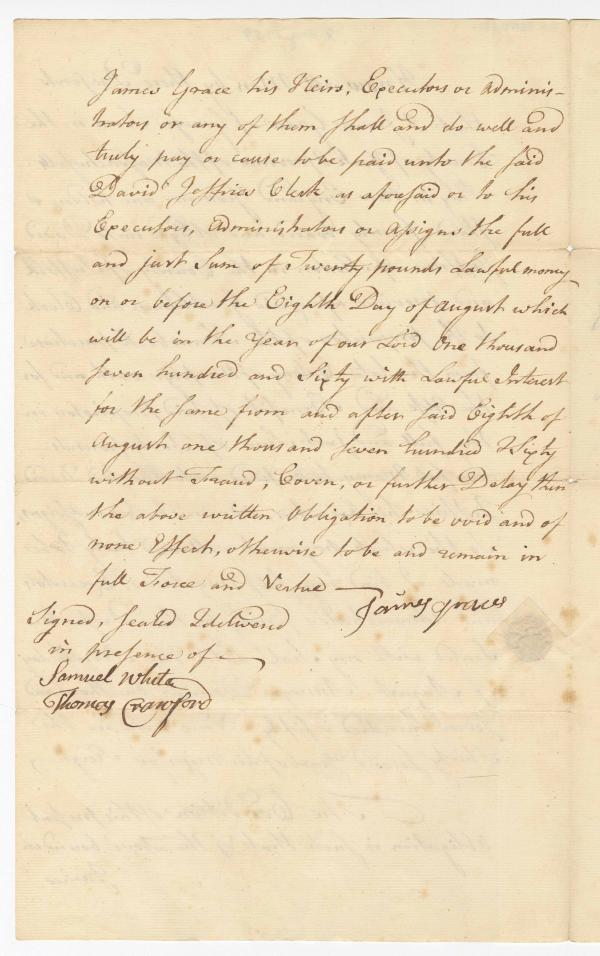 James Grace his Heirs, Executors or Adminis-
trators or any of them shall and do well and
truly pay or cause to be paid unto the said
David Jeffries Clerk as aforesaid or to his
Executors, Administrators or Assigns the full
and just Sum of Twenty pounds Lawful money
on or before the Eighth Day of August which
will be in the Year of our Lord One thousand
seven hundred and Sixty with Lawful Interest
for the same from and after said Eighth of
August one thousand seven hundred & Sixty
without Fraud, Coven, or further Delay then
the above written Obligation to be void and of
none Effect, otherwise to be and remain in
full Force and Vertue
James grace
Signed, sealed & delivered
in presence of
Samuel White
Thomas Crawford